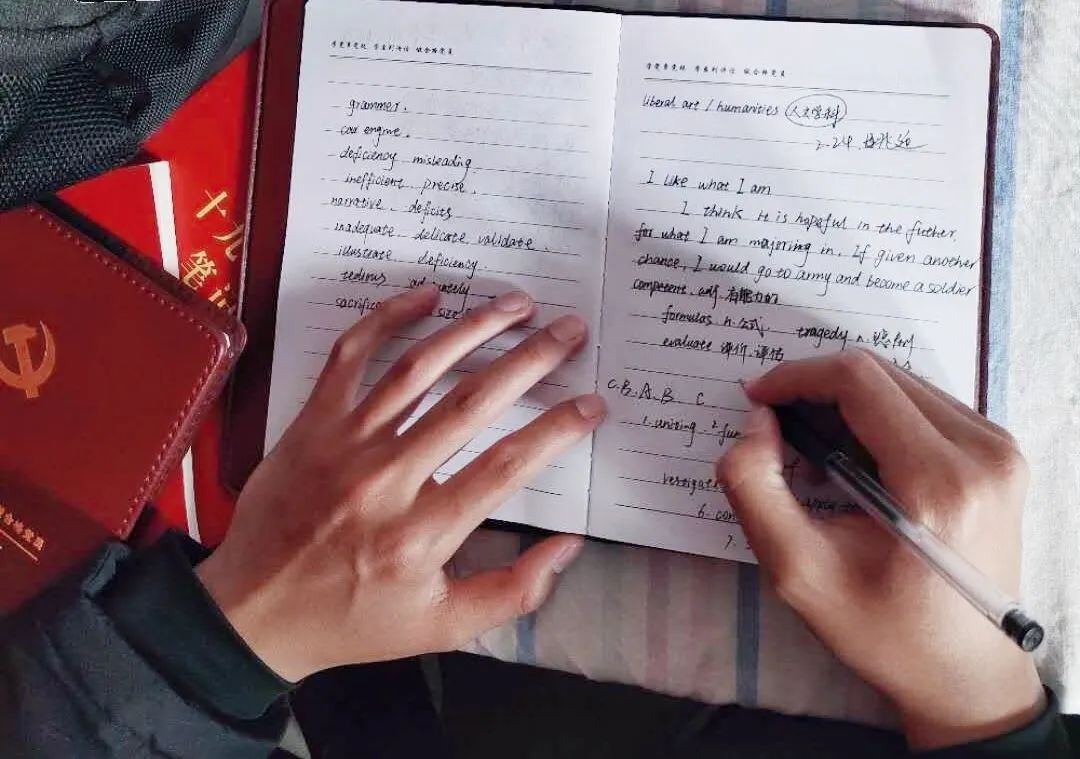 学党章党规 学系列讲话 做合格党员
grammer.
cow engine.
deficiency misleading
inefficient precise.
narrative deficits
inadequate delicate validate.
illustrate deficiency
tedious
学党章党规 学系列讲话 做合格党员
liberal art / humanities 人文学科
2.24
I like what I am
I think it is hopeful in the futher.
for what I am majoring in. If given another
chance, I would go to army and become a soldier
competent. adj. 有能力的
formulas n. 公式. tragedy n.
evaluate 评价. 评估
C.B. A.B C
1. uniting. 2
6. con
7.
十九
笔记
合格党员